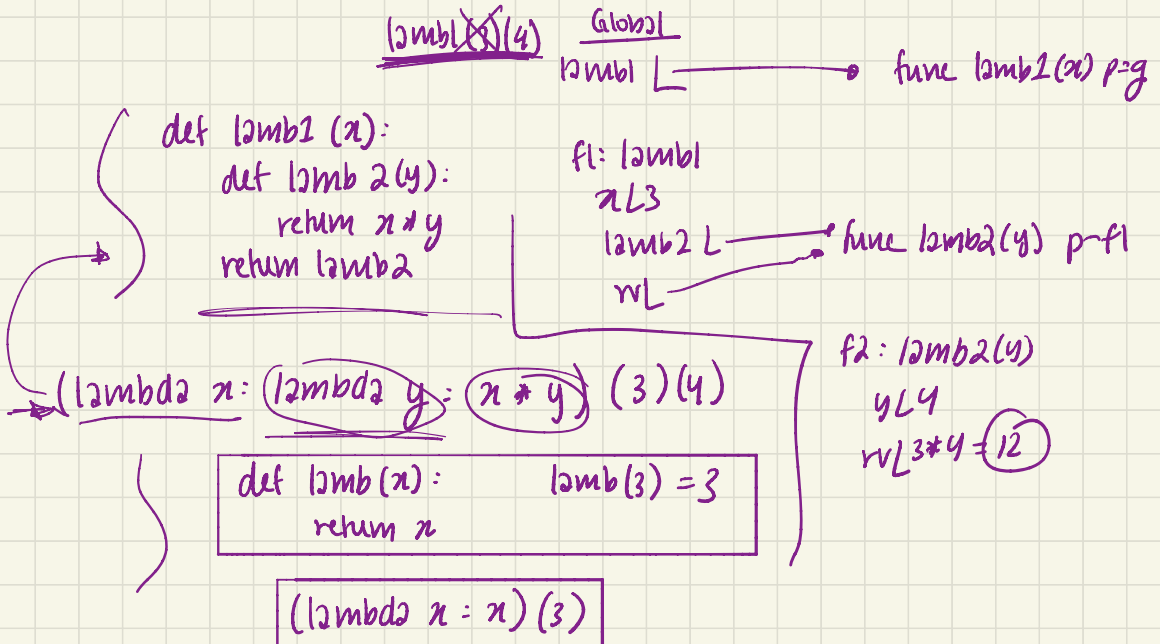 lamb1(3)(4)
Global
lamb1
func lamb1(x) p=g
def lamb1 (x):
def lamb 2(y):
return x*y
return lamb2
f1: lamb1
x 3
lamb2
func lamb2(y) p=f1
rv
(lambda x: lambda y: x * y) (3)(4)
f2: lamb2(y)
y 4
rv 3*4 = 12
def lamb(x): lamb(3) = 3
return x
(lambda x: x)(3)